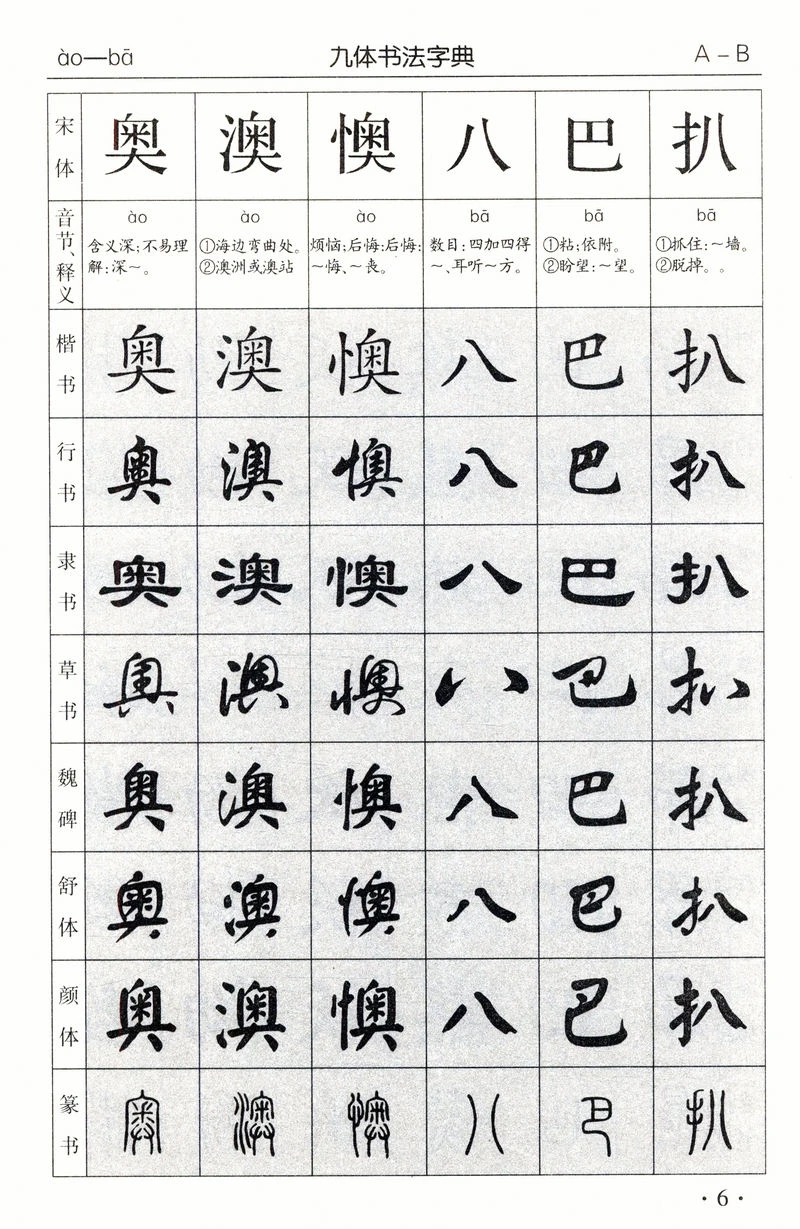 ào—bā 九体书法字典 A－B
宋体 奥 澳 懊 八 巴 扒
音节、释义 ào ào ào bā bā bā
含义深；不易理 ①海边弯曲处。 烦恼；后悔；后悔： 数目：四加四得 ①粘；依附。 ①抓住：～墙。
解：深～。 ②澳洲或澳站 ～悔、～丧。 ～、耳听～方。 ②盼望：～望。 ②脱掉。。
楷书 奥 澳 懊 八 巴 扒
行书 奥 澳 懊 八 巴 扒
隶书 奥 澳 懊 八 巴 扒
草书 奥 澳 懊 八 巴 扒
魏碑 奥 澳 懊 八 巴 扒
舒体 奥 澳 懊 八 巴 扒
颜体 奥 澳 懊 八 巴 扒
篆书 奥 澳 懊 八 巴 扒
·6·